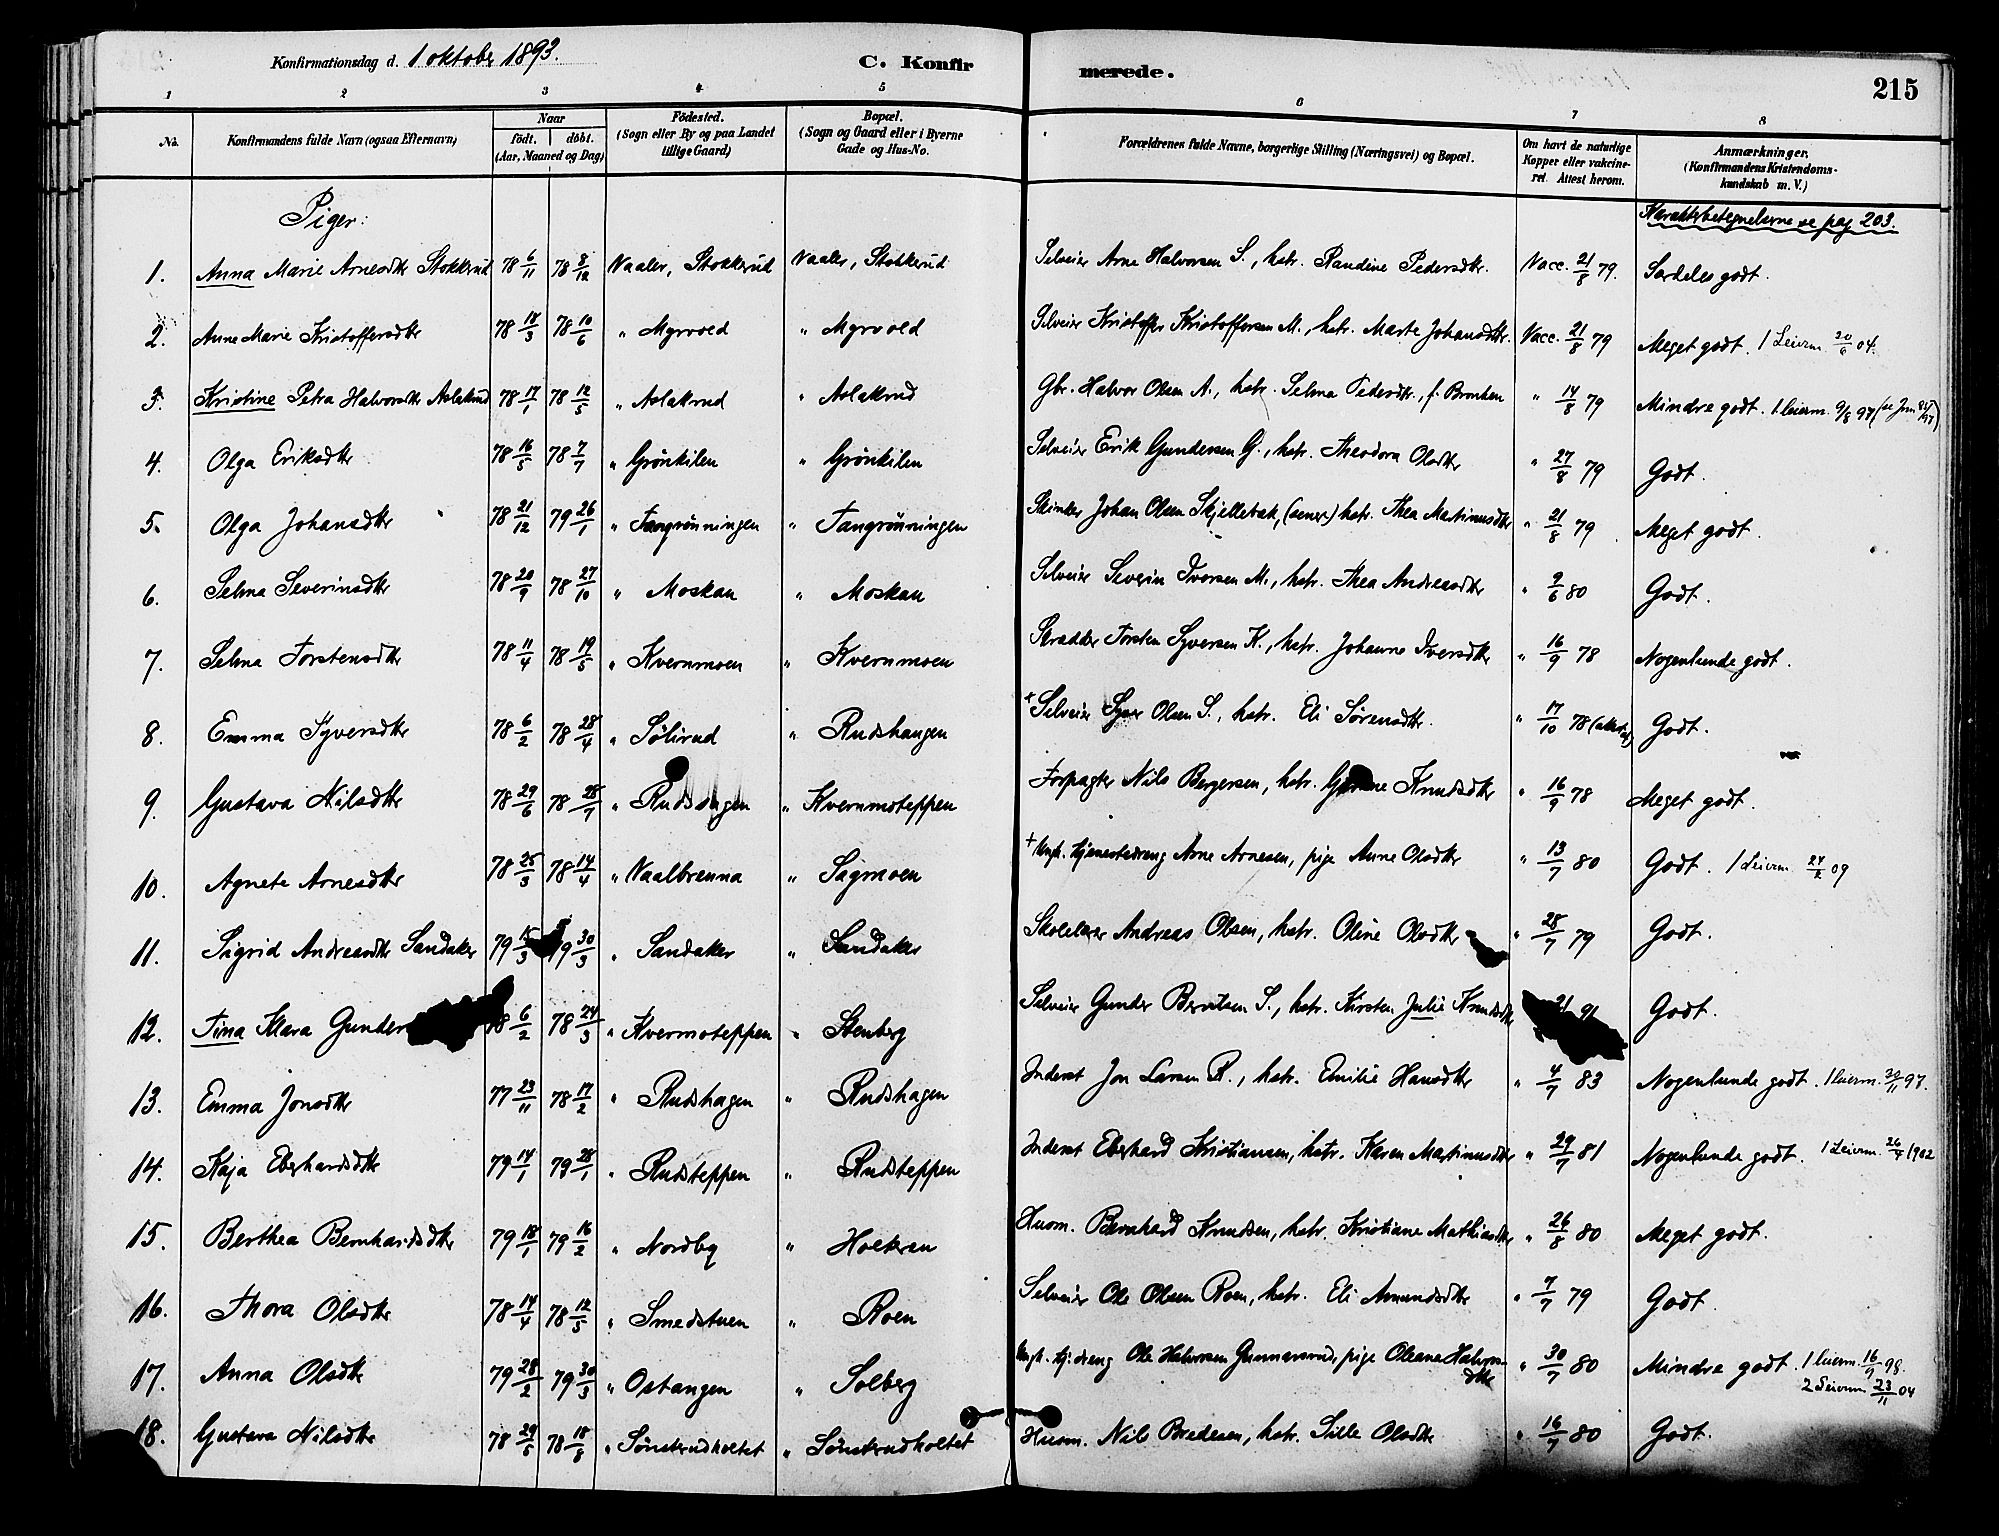 Konfirmationsdag d. 1 oktober 1893.
C. Konfirmerede.
215
1 2 3 4 5 6 7 8
No. Konfirmandens fulde Navn (ogsaa Efternavn) Naar født. døbt. (Aar, Maaned og Dag) Födested. (Sogn eller By og paa Landet tillige Gaard) Bopæl. (Sogn og Gaard eller i Byerne Gade og Hus-No. Forældrenes fulde Navne, borgerlige Stilling (Næringsvei) og Bopæl. Om havt de naturlige Kopper eller vakcineret. Attest herom. Anmærkninger. (Konfirmandens Kristendomskundskab m. V.)
Piger:
Karakterbetegnelserne se pag 203.
1. Anna Marie Arnesdtr Stokkerud 78 6/11 78 8/12 Vaaler, Stokkerud Vaaler, Stokkerud Selveier Arne Halvorsen S., hstr. Randine Pedersdtr. Vacc. 21/8 79. Særdeles godt.
2. Anne Marie Kristoffersdtr 78 17/3 78 10/6 " Myrvold " Myrvold Selveier Kristoffer Kristoffersen M., hstr. Marte Johansdtr. Vacc. 21/8 79 Meget godt. 1 Leierm. 20/6 04.
3. Kristine Petra Halvorsdtr Aslakrud 78 17/1 78 12/5 " Aslakrud " Aslakrud Gbr. Halvor Olsen A., hstr. Selma Pedersdtr., f. Bronken " 14/8 79 Mindre godt. 1 leierm. 9/8 97
4. Olga Eriksdtr 78 16/5 78 7/7 " Grönkilen " Grönkilen Selveier Erik Gundersen G., hstr. Theodora Olsdtr " 27/8 79 Godt.
5. Olga Johansdtr 78 21/12 79 26/1 " Tangrønningen " Tangrønningen Skinder Johan Olsen Skjellebæk, (senere) hstr. Thea Martinusdtr " 21/8 79 Meget godt.
6. Selma Severinsdtr 78 20/9 78 27/10 " Moskau " Moskau Selveier Severin Iversen M., hstr. Thea Andreasdtr " 9/6 80 Godt.
7. Selma Torstensdtr 78 11/4 78 19/5 " Kvernmoen " Kvernmoen Skrædder Torsten Syversen K., hstr. Johanne Iversdtr " 16/9 78 Nogenlunde godt.
8. Emma Syversdtr 78 6/2 78 28/4 " Sölirud " Rudshaugen + Selveier Syver Olsen S., hstr. Eli Sørensdtr. " 17/10 78 Godt.
9. Gustava Nilsdtr 78 29/6 78 28/7 " " Kvernmoteppen Forpagter Nils Bergersen, hstr. Knudsdtr " 16/9 78 Meget godt.
10. Agnete Arnesdtr 78 25/3 78 14/4 " Vaalbrenna " Sagmoen + Ungk. tjenestedreng Arne Arnesen, pige Anne Olsdtr " 13/7 80 Godt. 1 Leierm. 27/2 09
11. Sigrid Andreasdtr Sandaker 79 15/3 79 30/3 " Sandaker " Sandaker Skolelærer Andreas Olsen, hstr. Oline Olsdtr " 28/7 79 Godt.
12. Tina Klara Gunder 78 6/2 78 24/3 " Kvernmoteppen " Stenberg Selveier Gunder Berntsen S., hstr. Kirsten Julie Knudsdtr 21 91 Godt.
13. Emma Jonsdtr 77 23/11 78 17/2 " Rudshagen " Rudshagen Inderst Jon Larsen R., hstr. Emilie Hansdtr " 4/7 83 Nogenlunde godt. 1 leierm. 30/11 97.
14. Kaja Eberhardsdtr 79 14/1 79 28/1 " Rudsteppen " Rudsteppen Inderst Eberhard Kristiansen, hstr. Karen Martinusdtr " 29/7 81 Nogenlunde godt. 1 Leierm. 26/4 1902
15. Berthea Bernhardsdtr 79 18/1 79 16/2 " Nordby " Holteren Husm. Bernhard Knudsen, hstr. Kristiane Mathiasdtr " 26/8 80 Meget godt.
16. Thora Olsdtr 78 14/4 78 12/5 " Smedstuen " Roen Selveier Ole Olsen Roen, hstr. Eli Amundsdtr " 7/7 79 Godt.
17. Anna Olsdtr 79 28/2 79 30/3 " Ostangen " Solberg Ungk. tj.dreng Ole Halvorsen Gunnarsrud, pige Oleane Halvorsdtr " 30/7 80 Mindre godt. 1 leierm. 16/9 98
2 Leierm 23/11 04
18. Gustava Nilsdtr 78 29/5 78 18/8 " Sönsterudholtet " Sönsterudholtet Husm. Nils Bredesen, hstr. Sille Olsdtr " 16/7 80 Godt.